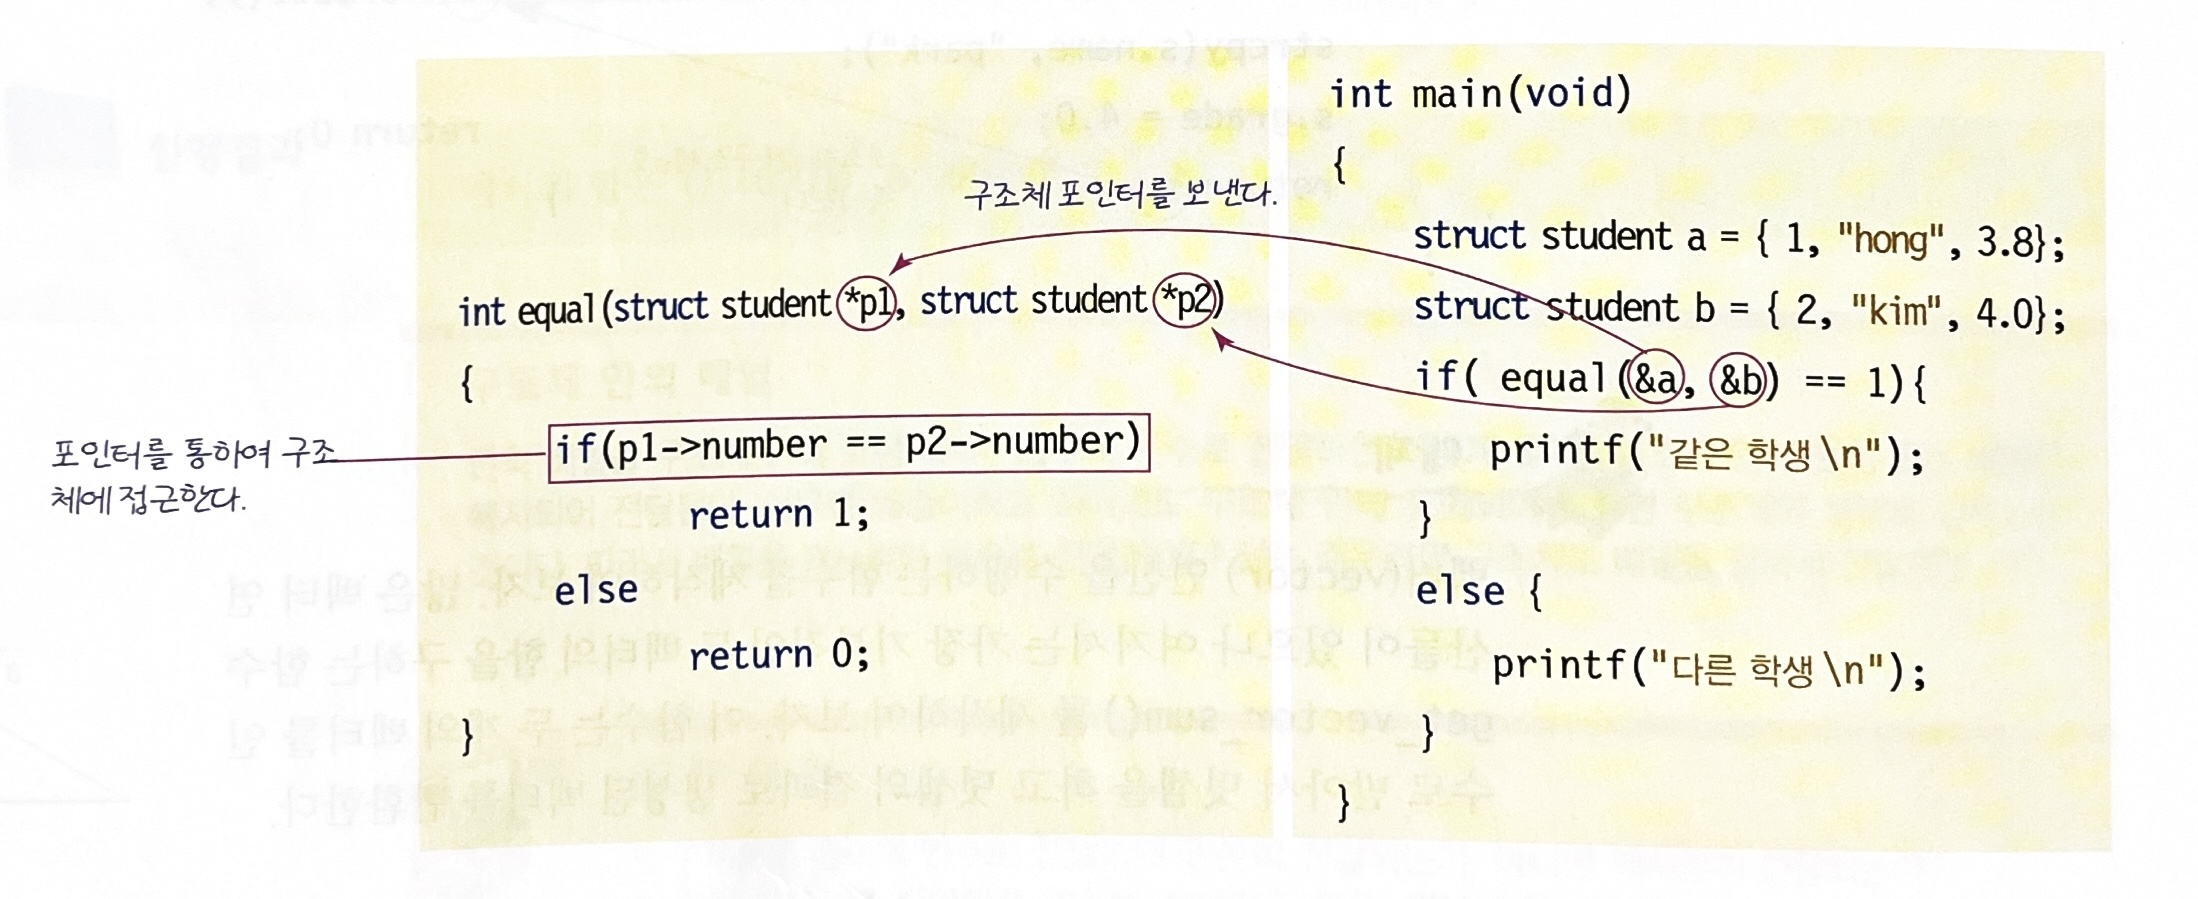 구조체 포인터를 보낸다.
int equal(struct student *p1, struct student *p2)
{
if(p1->number == p2->number)
return 1;
else
return 0;
}
포인터를 통하여 구조
체에 접근한다.
int main(void)
{
struct student a = { 1, "hong", 3.8};
struct student b = { 2, "kim", 4.0};
if( equal(&a, &b) == 1){
printf("같은 학생\n");
}
else {
printf("다른 학생\n");
}
}